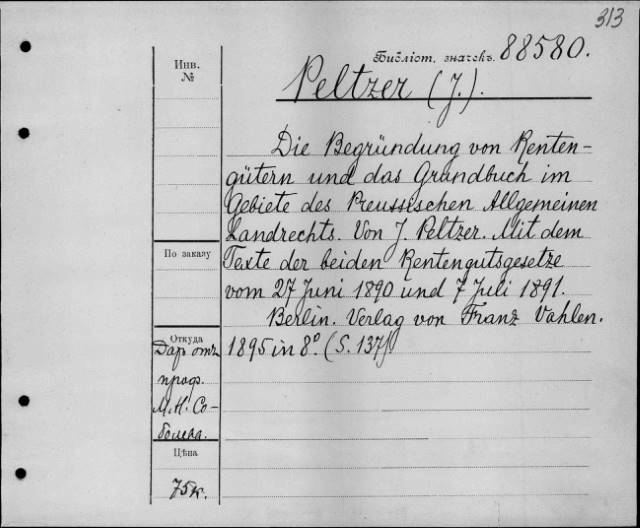 313
Библіот. значекъ. 88580.
Инв.
№
Peltzer (J.).
Die Begründung von Renten-
gütern und das Grundbuch im
Gebiete des Preussischen Allgemeinen
Landrechts. Von J. Peltzer. Mit dem
По заказу
Texte der beiden Rentengutsgesetze
vom 27 Juni 1890 und 7 Juli 1891.
Berlin. Verlag von Franz Vahlen.
1895 in 8°. (S. 137)
Откуда
Даръ отъ
проф.
М. Н. Со-
болева.
Цѣна
75к.